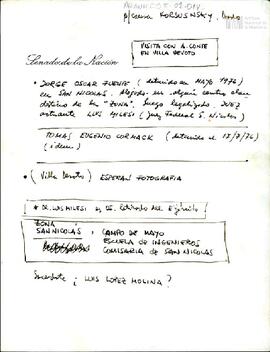 p/causa KORSUNSKY,
VISITA CON A. CONTE
EN VILLA DEVOTO
Senado de la Nación
• JORGE OSCAR FUENTE (detenido en MAYO 1976)
en SAN NICOLAS. Alojado en algún centro clan
destino de la "ZONA", luego legalizado. JUEZ
actuante LUIS MILESI (Juez Federal S. Nicolás)
TOMAS EUGENIO CORMACK (detenido el 17/7/76)
(idem)
• (Villa Devoto) ESPERAN FOTOGRAFIA
* DR. LUIS MILESI es Retirado del Ejército
ZONA
SAN NICOLAS : CAMPO DE MAYO
ESCUELA DE INGENIEROS
COMISARIA DE SAN NICOLAS
Sacerdote ¿ LUIS LOPEZ MOLINA ?